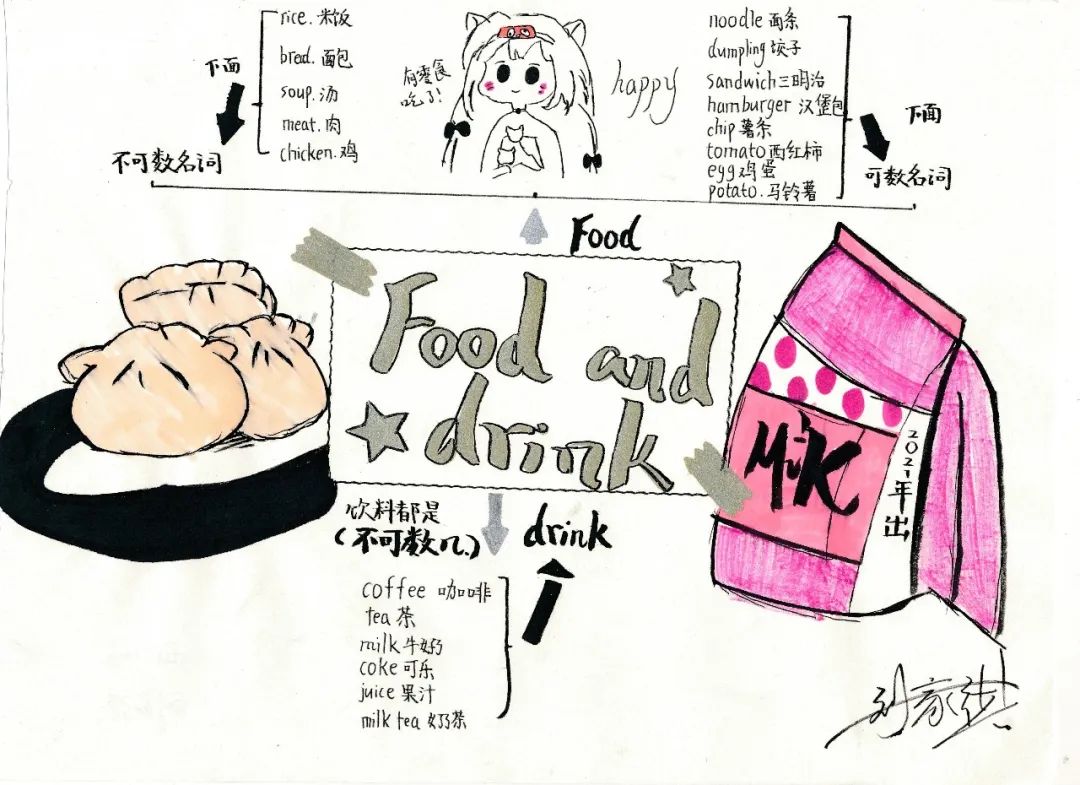 rice. 米饭
bread. 面包
soup. 汤
meat. 肉
chicken. 鸡
下面
不可数名词
有零食
吃了!
happy
noodle 面条
dumpling 饺子
sandwich 三明治
hamburger 汉堡包
chip 薯条
tomato 西红柿
egg 鸡蛋
potato. 马铃薯
下面
可数名词
Food
Food and
drink
Milk
2021年出
饮料都是
(不可数n.)
drink
coffee 咖啡
tea 茶
milk 牛奶
coke 可乐
juice 果汁
milk tea 奶茶